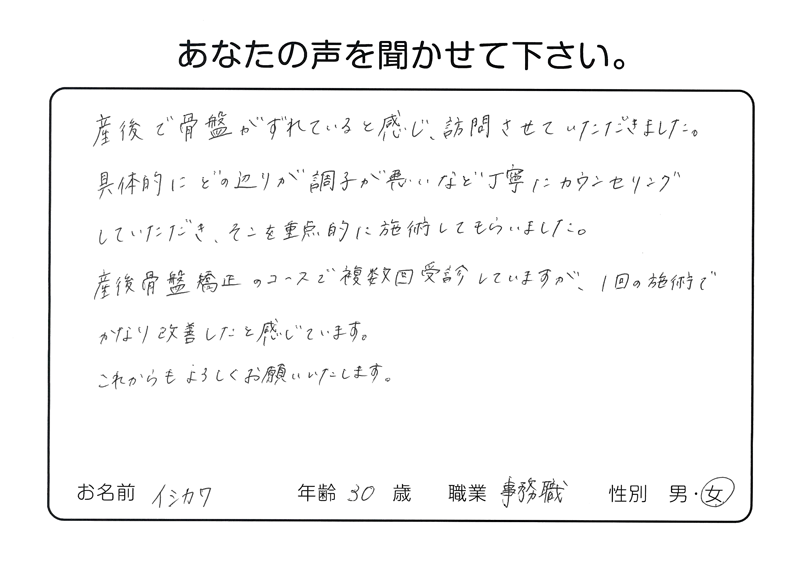 あなたの声を聞かせて下さい。
産後で骨盤がずれていると感じ、訪問させていただきました。
具体的にどの辺りが調子が悪いなど丁寧にカウンセリング
していただき、そこを重点的に施術してもらいました。
産後骨盤矯正のコースで複数回受診していますが、1回の施術で
かなり改善したと感じています。
これからもよろしくお願いいたします。
お名前 イシカワ 年齢 30 歳 職業 事務職 性別 男・女